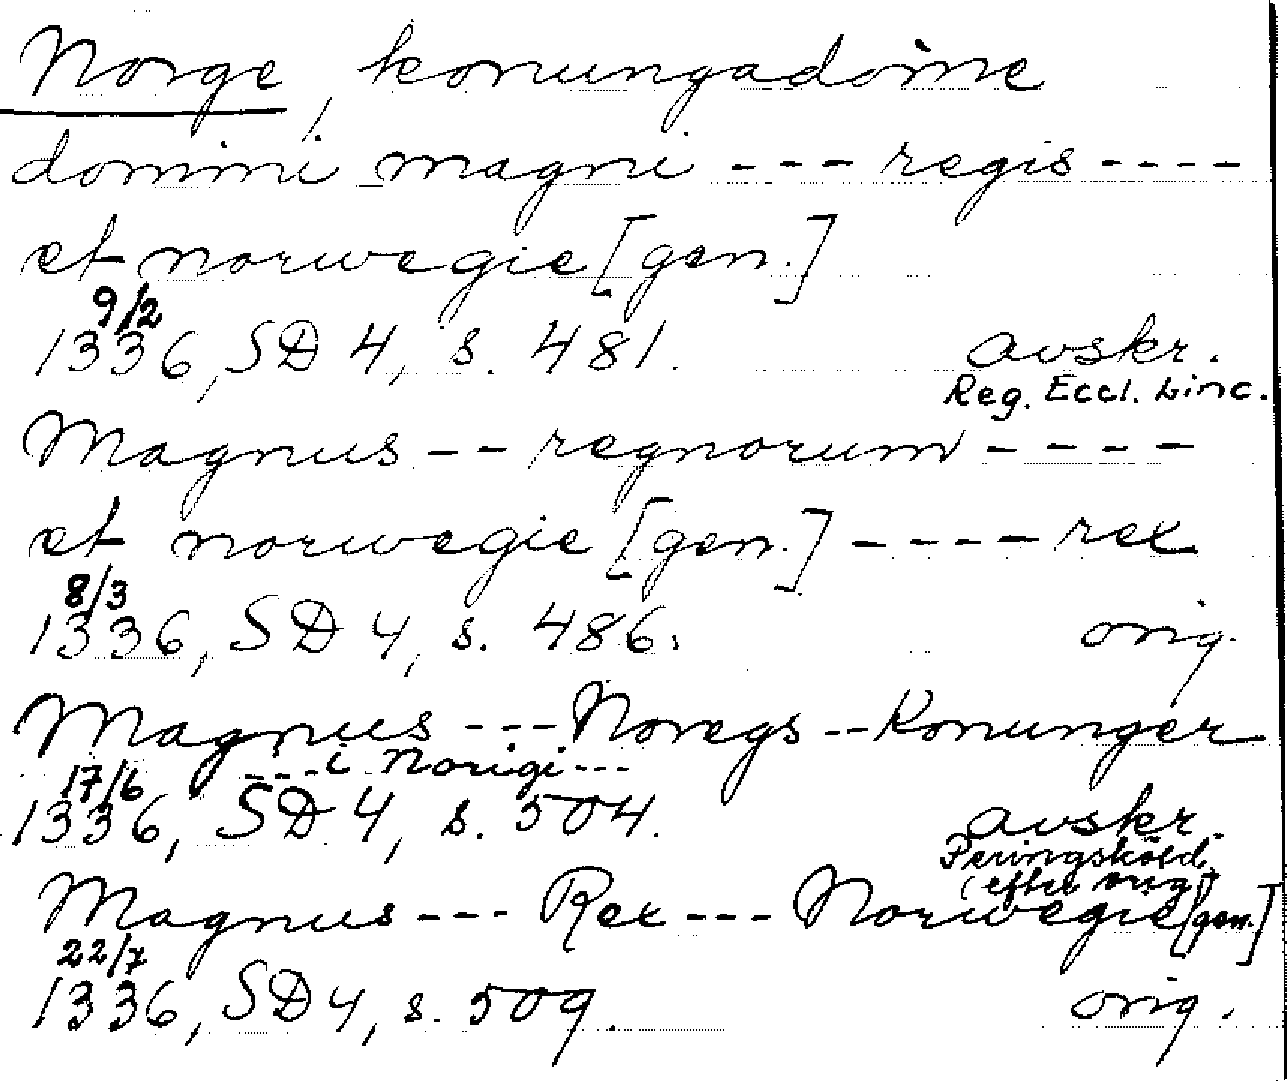 Norge, konungadöme
domini magni --- regis ----
et norwegie [gen.]
9/2
1336, SD 4, s. 481. avskr.
Reg. Eccl. Linc.
Magnus -- regnorum ----
et norwegie [gen.] ---- rex
8/3
1336, SD 4, s. 486. orig.
Magnus --- Noregs -- Konunger
--- i Norigi ---
17/6
1336, SD 4, s. 504. avskr.
Peringsköld
(efter orig)
Magnus --- Rex --- Norwegie [gen.]
22/7
1336, SD 4, s. 509. orig.